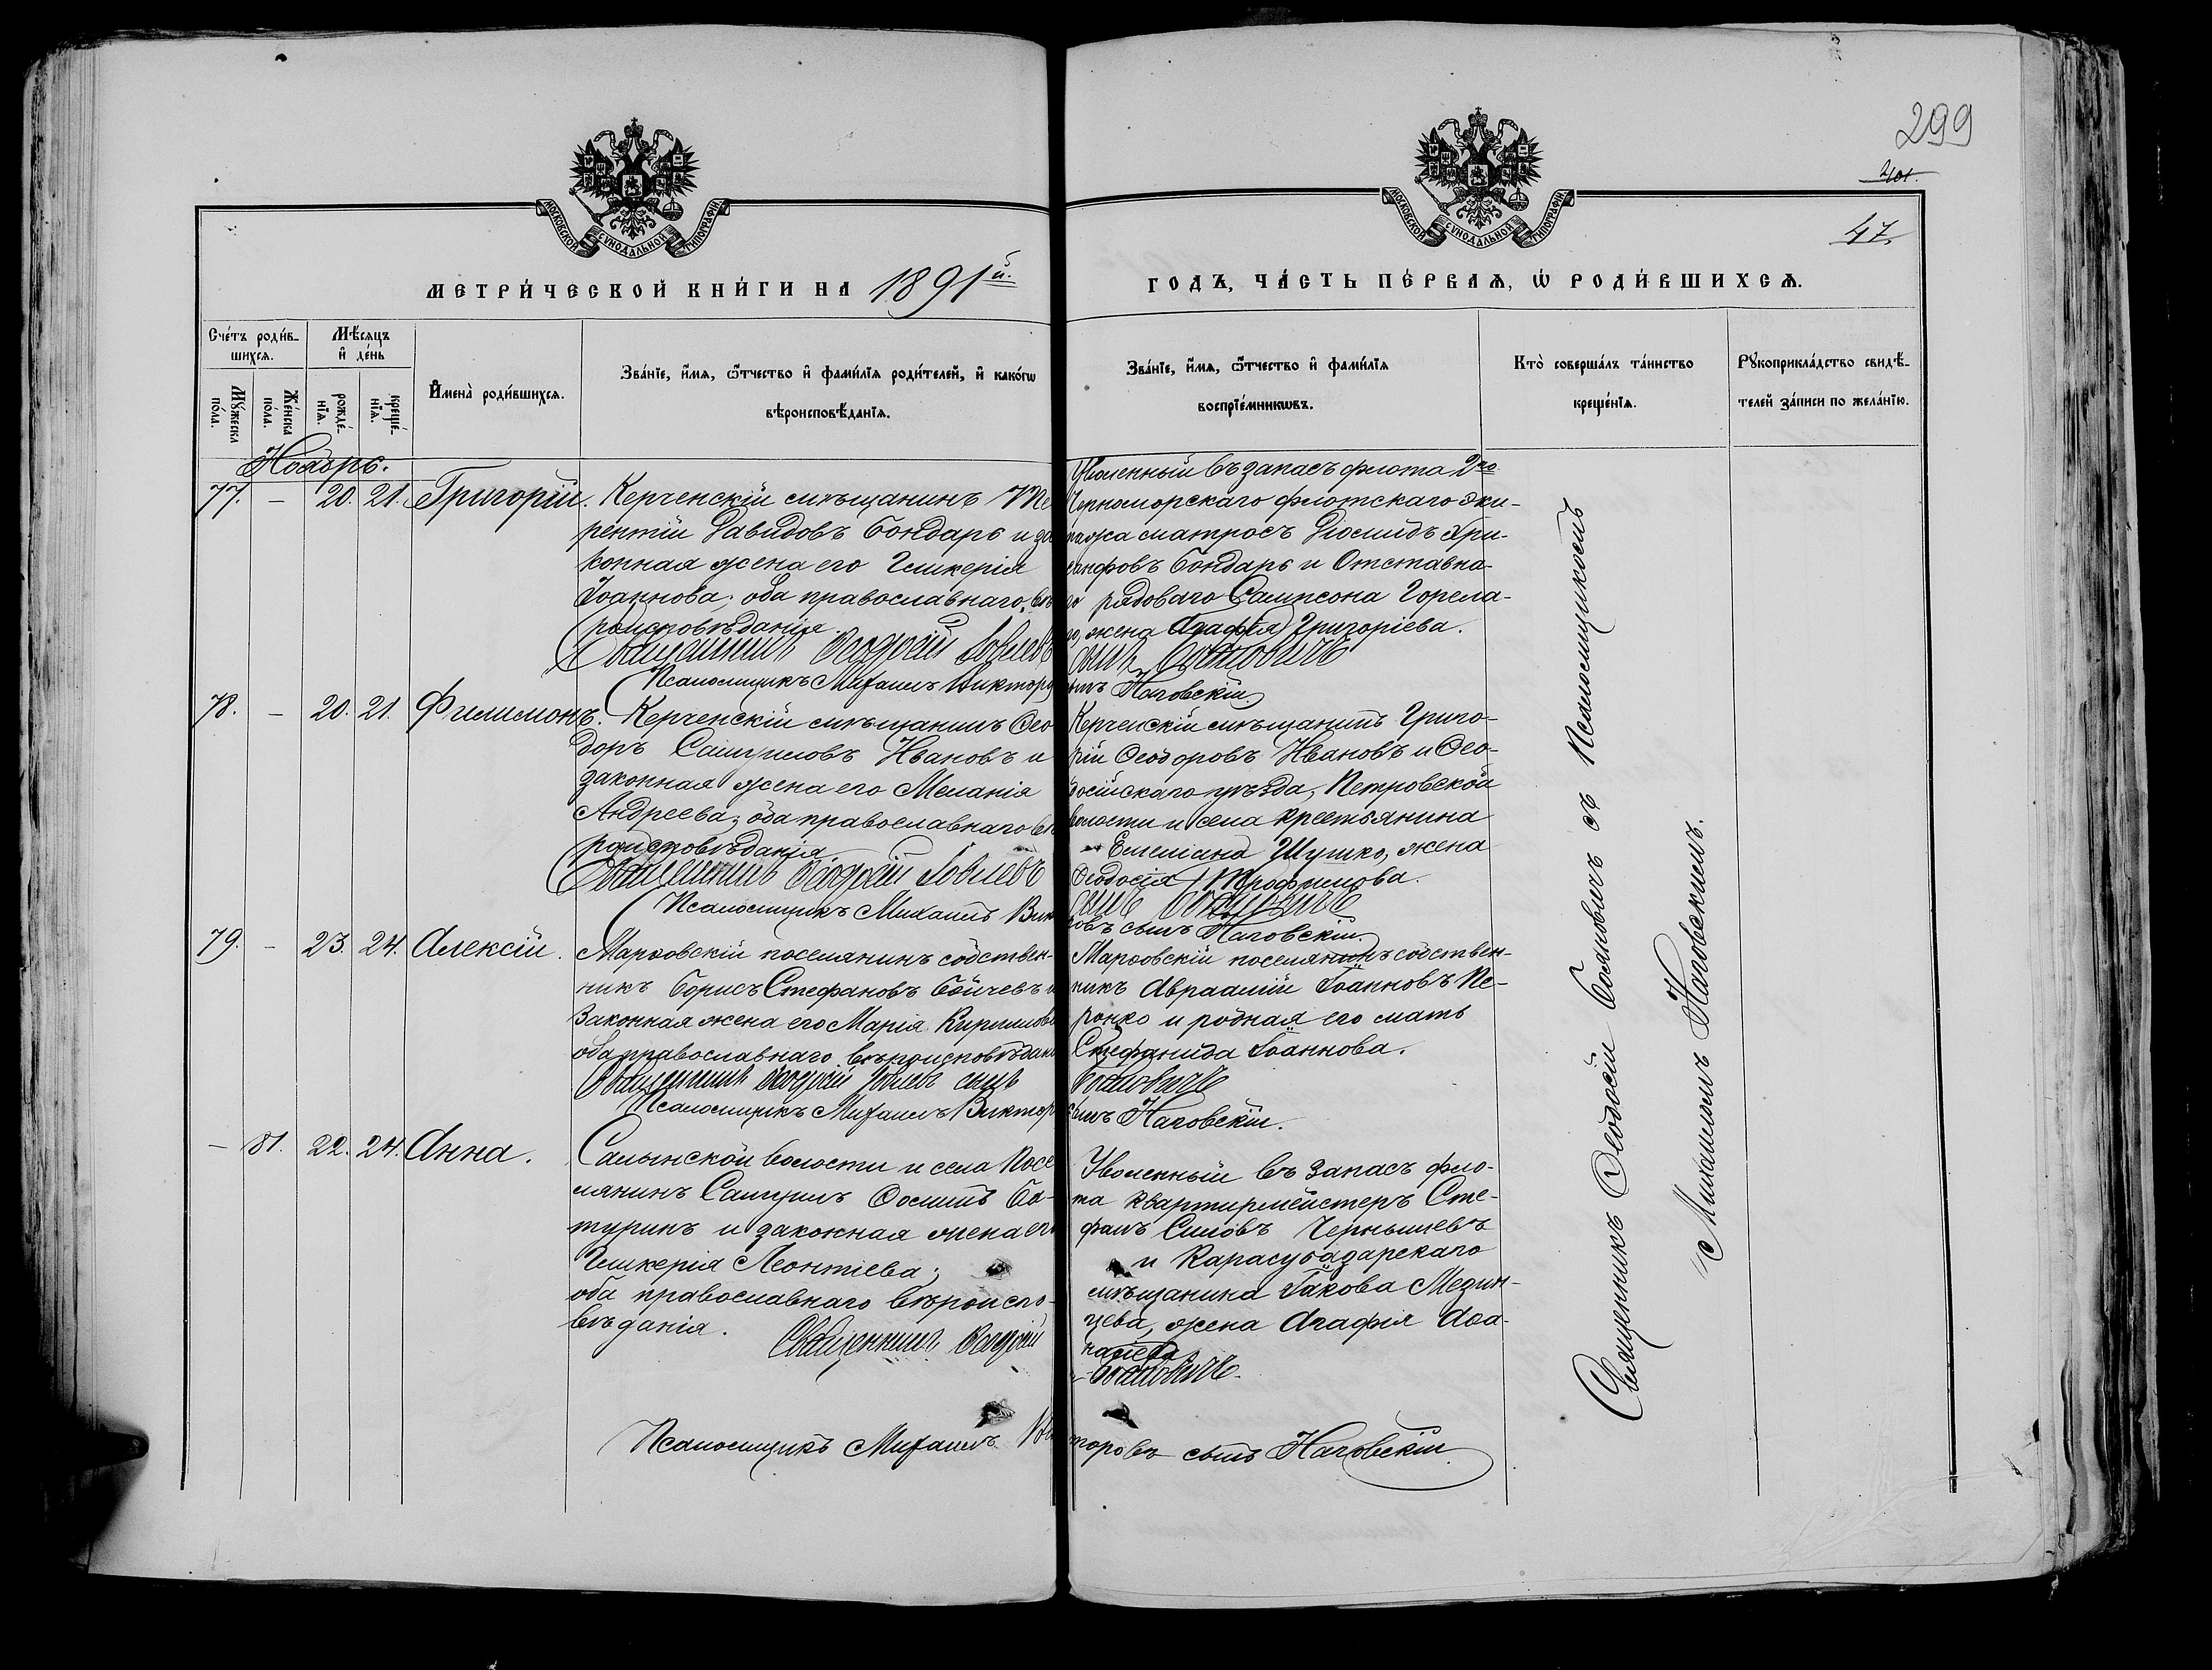 299
401.
47.
МОСКОВСКОЙ СѴНОДАЛЬНОЙ ТИПОГРАФІИ
МОСКОВСКОЙ СѴНОДАЛЬНОЙ ТИПОГРАФІИ
МЕТРИ́ЧЕСКОЙ КНИ́ГИ НА 1891й.
ГОДЪ, ЧА́СТЬ ПЕ́РВАѦ, Ѡ РОДИ́ВШИХСѦ.
Сче́тъ роди́в-
шихсѧ.
Мꙋжеска по́ла.
Же́нска по́ла.
Мѣ́сѧцъ и де́нь
рожде́-нїѧ.
креще́-нїѧ.
Имена̀ роди́вшихсѧ.
Зва́нїе, и́мѧ, ѻ́тчество и фами́лїѧ роди́телей, и како́гѡ
вѣроисповѣ́данїѧ.
Зва́нїе, и́мѧ, ѻ́тчество и фами́лїѧ
воспрїе́мникѡвъ.
Кто̀ соверша́лъ та́инство
креще́нїѧ.
Рꙋкоприкла́дство свидѣ́-
телей за́писи по жела́нїю.
Ноябрь.
77. — 20. 21. Григорій. Керченскій мѣщанинъ Те
рентій Давидовъ Бондарь и за
конная жена его Гликерія
Іоаннова; оба православнаго вѣ
роисповѣданія.
Священникъ Ѳеодосій Іовлевъ
Псаломщикъ Михаилъ Викторо
Уволенный въ запасъ флота 2го
Черноморскаго флотскаго эки-
пажа матросъ Діомидъ Хри-
санфовъ Бондарь и Отставна-
го рядоваго Сампсона Горела-
го, жена Агафія Григоріева.
сынъ Соллогичъ
вымъ Наговскій
78. — 20. 21. Филимонъ. Керченскій мѣщанинъ Ѳео
доръ Самуиловъ Ивановъ и
законная жена его Меланія
Андреева; оба православнаго вѣ
роисповѣданія
Священникъ Ѳеодосій Іовлевъ
Псаломщикъ Михаилъ Вик
Керченскій мѣщанинъ Григо-
рій Ѳеодоровъ Ивановъ и Ѳео-
досійскаго уѣзда, Петровской
волости и села крестьянина
Емеліана Шушко, жена
Ѳеодосія Трофимова.
сынъ
ровъ сынъ Наговскій.
79. — 23. 24. Алексій. Марѳовскій поселянинъ собствен-
никъ Борисъ Стефановъ Бойчевъ и
законная жена его Марія Кириллова
оба православнаго вѣроисповѣдані
Священникъ Ѳеодосій Іовлевъ сынъ
Псаломщикъ Михаилъ Виктор
Марѳовскій поселянинъ собствен-
никъ Авраамій Іоанновъ Пе-
ронко и родная его мать
Стефанида Іоаннова.
сынъ Наговскій.
— 81. 22. 24. Анна. Салынской волости и села Посе
лянинъ Самуилъ Ѳоминъ Ба-
туринъ и законная жена его
Гликерія Леонтіева;
оба православнаго вѣроиспо-
вѣданія.
Священникъ Ѳеодосій
Псаломщикъ Михаилъ Вик
Уволенный въ запасъ фло-
та квартирмейстеръ Сте-
фанъ Силовъ Чернышевъ
и Карасубазарскаго
мѣщанина Іакова Медин-
цева, жена Агафія Аѳа-
насіева
торовъ сынъ Наговскій
Священникъ Ѳеодосій с псаломщикомъ
Михаиломъ Наговскимъ.